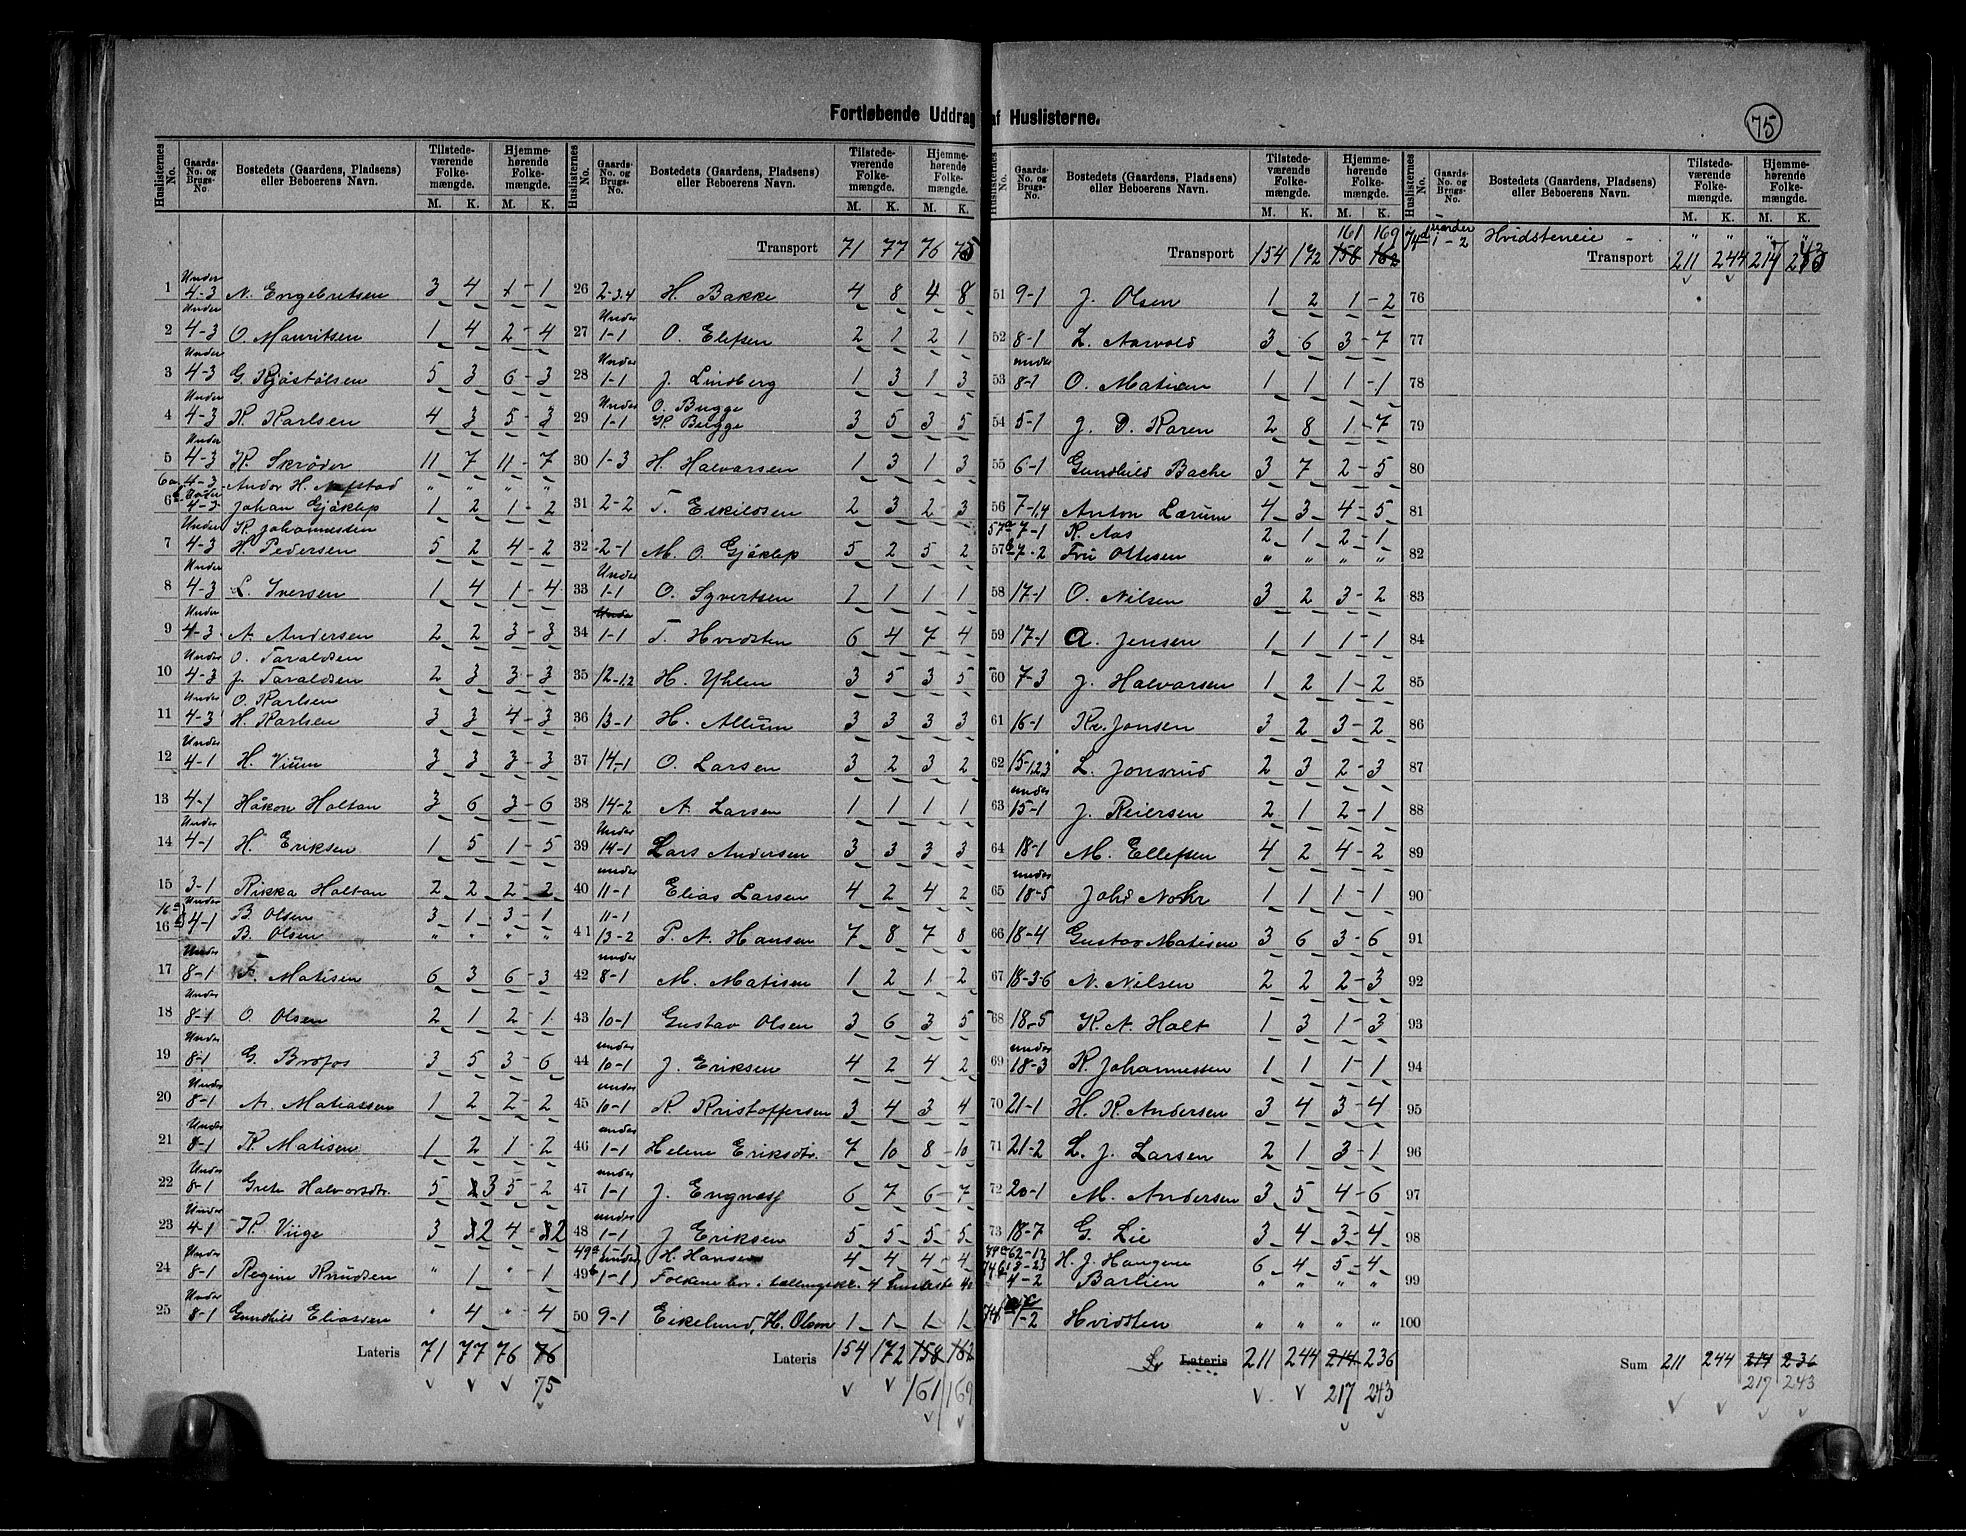 Fortløbende Uddrag af Huslisterne.
75
Huslisternes No. | Gaards-No. og Brugs-No. | Bostedets (Gaardens, Pladsens) eller Beboerens Navn. | Tilstedeværende Folkemængde. M. K. | Hjemmehørende Folkemængde. M. K.
1 Under 4-3 N. Engebretsen 3 4 1-1
2 Under 4-3 O. Mauritsen 1 4 2-4
3 Under 4-3 G. Kjøstølsen 5 3 6-3
4 Under 4-3 K. Karlsen 4 3 5-3
5 Under 4-3 K. Skrøder 11 7 11-7
6a 4-3 Andor H. Aafstad " " " "
6b Under 4-3 Johan Gjöklep 1 2 1-2
Under K. Johannessen
7 4-3 H. Pedersen 5 2 4-2
8 Under 4-3 L. Iversen 1 4 1-4
9 Under 4-3 A. Andersen 2 2 3-3
Under O. Taraldsen
10 4-3 J. Taraldsen 2 3 3-3
Under O. Karlsen
11 4-3 H. Karlsen 3 3 4-3
12 Under 4-1 H. Vium 3 3 3-3
13 4-1 Håkon Holtan 3 6 3-6
14 Under 4-1 H. Eriksen 1 5 1-5
15 3-1 Rikka Holtan 2 2 2-2
16a Under 4-1 B. Olsen 3 1 3-1
16b B. Olsen " " " "
17 Under 8-1 F. Matisen 6 3 6-3
18 Under 8-1 O. Olsen 2 1 2-1
19 Under 8-1 G. Brofos 3 5 3-6
20 Under 8-1 A. Matiassen 1 2 2-2
21 Under 8-1 K. Matisen 1 2 1-2
22 Under 8-1 Grete Halvorsdtr. 5 3 5-2
23 Under 4-1 K. Viige 3 2 4-2
24 Under 8-1 Regine Knudsen " 1 " 1
25 Under 8-1 Gundhild Eliasden " 4 " 4
Lateris 71 77 76 76
75
Huslisternes No. | Gaards-No. og Brugs-No. | Bostedets (Gaardens, Pladsens) eller Beboerens Navn. | Tilstedeværende Folkemængde. M. K. | Hjemmehørende Folkemængde. M. K.
Transport 71 77 76 75
26 2-3.4 H. Bakke 4 8 4 8
27 Under 1-1 O. Elefsen 2 1 2 1
28 Under 1-1 J. Lindberg 1 3 1 3
Under O. Bugge
29 1-1 K. Bugge 3 5 3 5
30 1-3 H. Halvarsen 1 3 1 3
31 2-2 T. Eskildsen 2 3 2-3
32 2-1 M. O. Gjöklep 5 2 5 2
33 Under 1-1 O. Syvertsen 2 1 1 1
34 Under 1-1 T. Hvidsten 6 4 7 4
35 12-1,2 H. Yhlen 3 5 3 5
36 13-1 H. Allum 3 3 3 3
37 14-1 O. Larsen 3 2 3 2
38 14-2 A. Larsen 1 1 1 1
39 Under 14-1 Lars Andersen 3 3 3 3
40 under 11-1 Elias Larsen 4 2 4 2
41 11-1 13-2 P. A. Hansen 7 8 7 8
42 under 8-1 M. Matisen 1 2 1-2
43 10-1 Gustav Olsen 3 6 3 5
44 under 10-1 J. Eriksen 4 2 4 2
45 under 10-1 K. Kristoffersen 3 4 3 4
46 under 1-1 Helene Eriksdtr. 7 10 8-10
47 under 1-1 J. Engnæs 6 7 6-7
48 under 1-1 J. Eriksen 5 5 5-5
49a 1-1 under H. Hansen 4 4 4-4
49b 1-1 Folkene bor i tællingskr. 4
50 9-1 Eikelund, H. Olsen 1 1 1-1
Lateris 154 172 158 162
161 169
Huslisternes No. | Gaards-No. og Brugs-No. | Bostedets (Gaardens, Pladsens) eller Beboerens Navn. | Tilstedeværende Folkemængde. M. K. | Hjemmehørende Folkemængde. M. K.
161 169
Transport 154 172 158 162
51 9-1 J. Olsen 1 2 1-2
52 8-1 L. Aarvold 3 6 3-7
53 under 8-1 O. Matisen 1 1 1-1
54 5-1 J. D. Karen 2 8 1-7
55 6-1 Gundhild Bache 3 7 2-5
56 7-1,4 Anton Lærum 4 3 4-5
57a 7-1 K. Aas 2 1 2-1
57b 7-2 Fru Ottesen " " " "
58 17-1 O. Nilsen 3 2 3-2
59 17-1 A. Jensen 1 1 1-1
60 7-3 J. Halvarsen 1 2 1-2
61 16-1 Kr. Jonsen 3 2 3-2
62 15-1,2,3 L. Jonsrud 2 3 2-3
63 under 15-1 J. Reiersen 2 1 2-1
64 18-1 M. Ellefsen 4 2 4-2
65 under 18-5 Johs Nohr 1 1 1-1
66 18-4 Gustav Matisen 3 6 3-6
67 18-3-6 N. Nilsen 2 2 2-3
68 18-5 K. A. Holt 1 3 1-3
69 under 18-3 K. Johannessen 1 1 1-1
70 21-1 H. K. Andersen 3 4 3-4
71 21-2 L. J. Larsen 2 1 3-1
72 20-1 M. Andersen 3 5 4-6
73 18-7 G. Lie 3 4 3-4
74a 62-12 18-23 H. J. Haugene 6 4 5-4
74b 4-2 Barlien " " " "
74c 1-2 Hvidsten " " " "
Lateris 211 244 214 236
217 243
Huslisternes No. | Gaards-No. og Brugs-No. | Bostedets (Gaardens, Pladsens) eller Beboerens Navn. | Tilstedeværende Folkemængde. M. K. | Hjemmehørende Folkemængde. M. K.
74d under 1-2 Hvidsteneie - " " " "
Transport 211 244 217 243
76
77
78
79
80
81
82
83
84
85
86
87
88
89
90
91
92
93
94
95
96
97
98
99
100
Sum 211 244 214 236
217 243